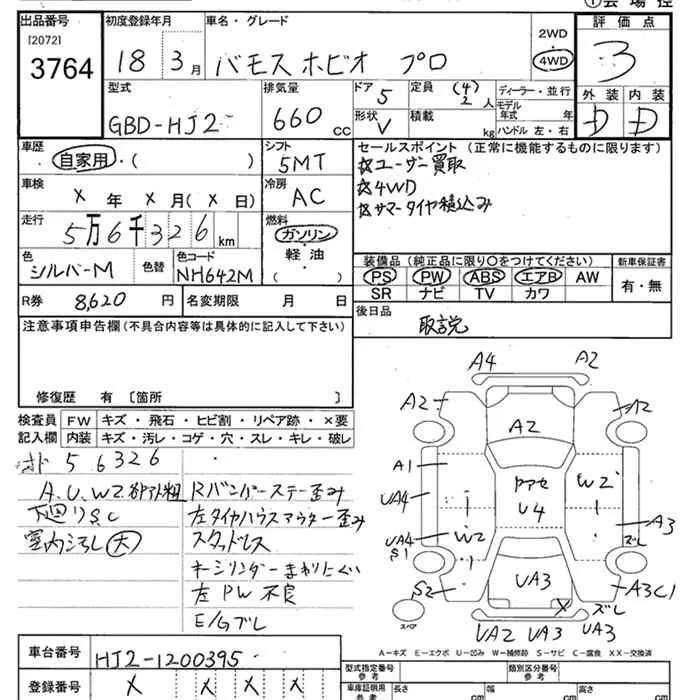 ①会場控
出品番号 初度登録年月 車名・グレード 2WD 評価点
[2072] 4WD
3764 18 3月 バモス ホビオ プロ 3
型式 排気量 ドア 5 定員 (4) 2人 ディーラー・並行 外装 内装
GBD-HJ2 660cc 形状 V 積載 kg モデル年式 年 D D
ハンドル 左・右
車歴 シフト セールスポイント (正常に機能するものに限ります)
自家用・( ) 5MT ☆ユーザー買取
車検 冷房 ☆4WD
X年X月(X日) AC ☆サマータイヤ積込み
走行 燃料
5万6千326km ガソリン
色 色替 色コード 軽油
シルバーM NH642M ( )
装備品 (純正品に限り○をつけてください) 新車保証書
PS PW ABS エアB AW 有・無
SR ナビ TV カワ
R券 8,620円 名変期限 月 日
後日品 取説
注意事項申告欄 (不具合内容等は具体的に記入して下さい)
修復歴 有 〔箇所 〕
検査員 FW キズ・飛石・ヒビ割・リペア跡・×要
記入欄 内装 キズ・汚レ・コゲ・穴・スレ・キレ・破レ
オド 56326
A.U.W2 Rバンパーステー歪み
下廻りS.C 左タイヤハウスアウター歪み
室内汚れ(大) スタッドレス
キーシリンダーまわりにくい
左PW不良
E/Gブレ
A4 A2
A2 A2
A2
A1
UA4 U4 W2
A3
ズレ
UA4 W2
S1
S2 UA3 A3C1
X ズレ
UA2 UA3 UA3
スペア
A-キズ E-エクボ U-凹み W-補修跡 S-サビ C-腐食 XX-交換済
車台番号 HJ2-1200395
登録番号 X X X X
型式指定番号 参考 類別区分番号 参考
車庫証明用 参考 長さ cm 幅 cm 高さ cm